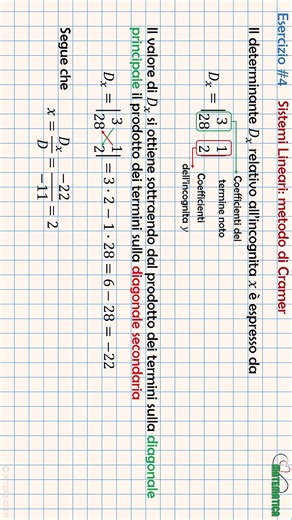 Esercizio #4 Sistemi Lineari: metodo di Cramer
MATEMATICA
Il determinante Dₓ relativo all'incognita x è espresso da
Dₓ = |3 1|
|28 2|
Coefficienti del
termine noto
Coefficienti
dell'incognita y
Il valore di Dₓ si ottiene sottraendo dal prodotto dei termini sulla diagonale
principale il prodotto dei termini sulla diagonale secondaria
Dₓ = |3 1|
|28 2| = 3 · 2 − 1 · 28 = 6 − 28 = −22
Segue che
x = Dₓ/D = −22/−11 = 2